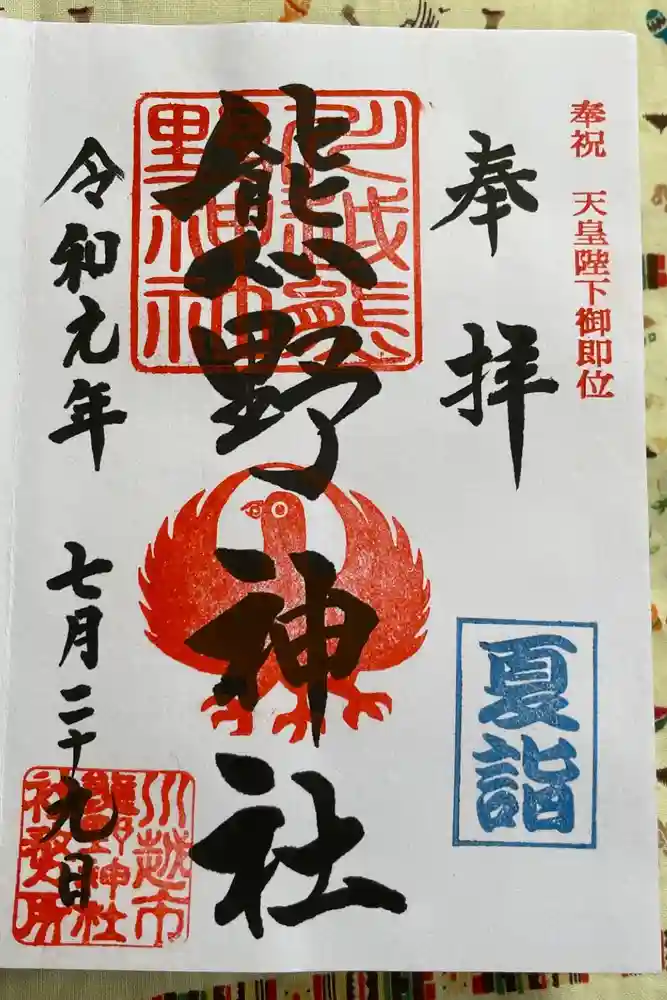 奉祝 天皇陛下御即位
奉拝
夏詣
川越熊野神社
熊野神社
令和元年 七月二十九日
川越市熊野神社社務所